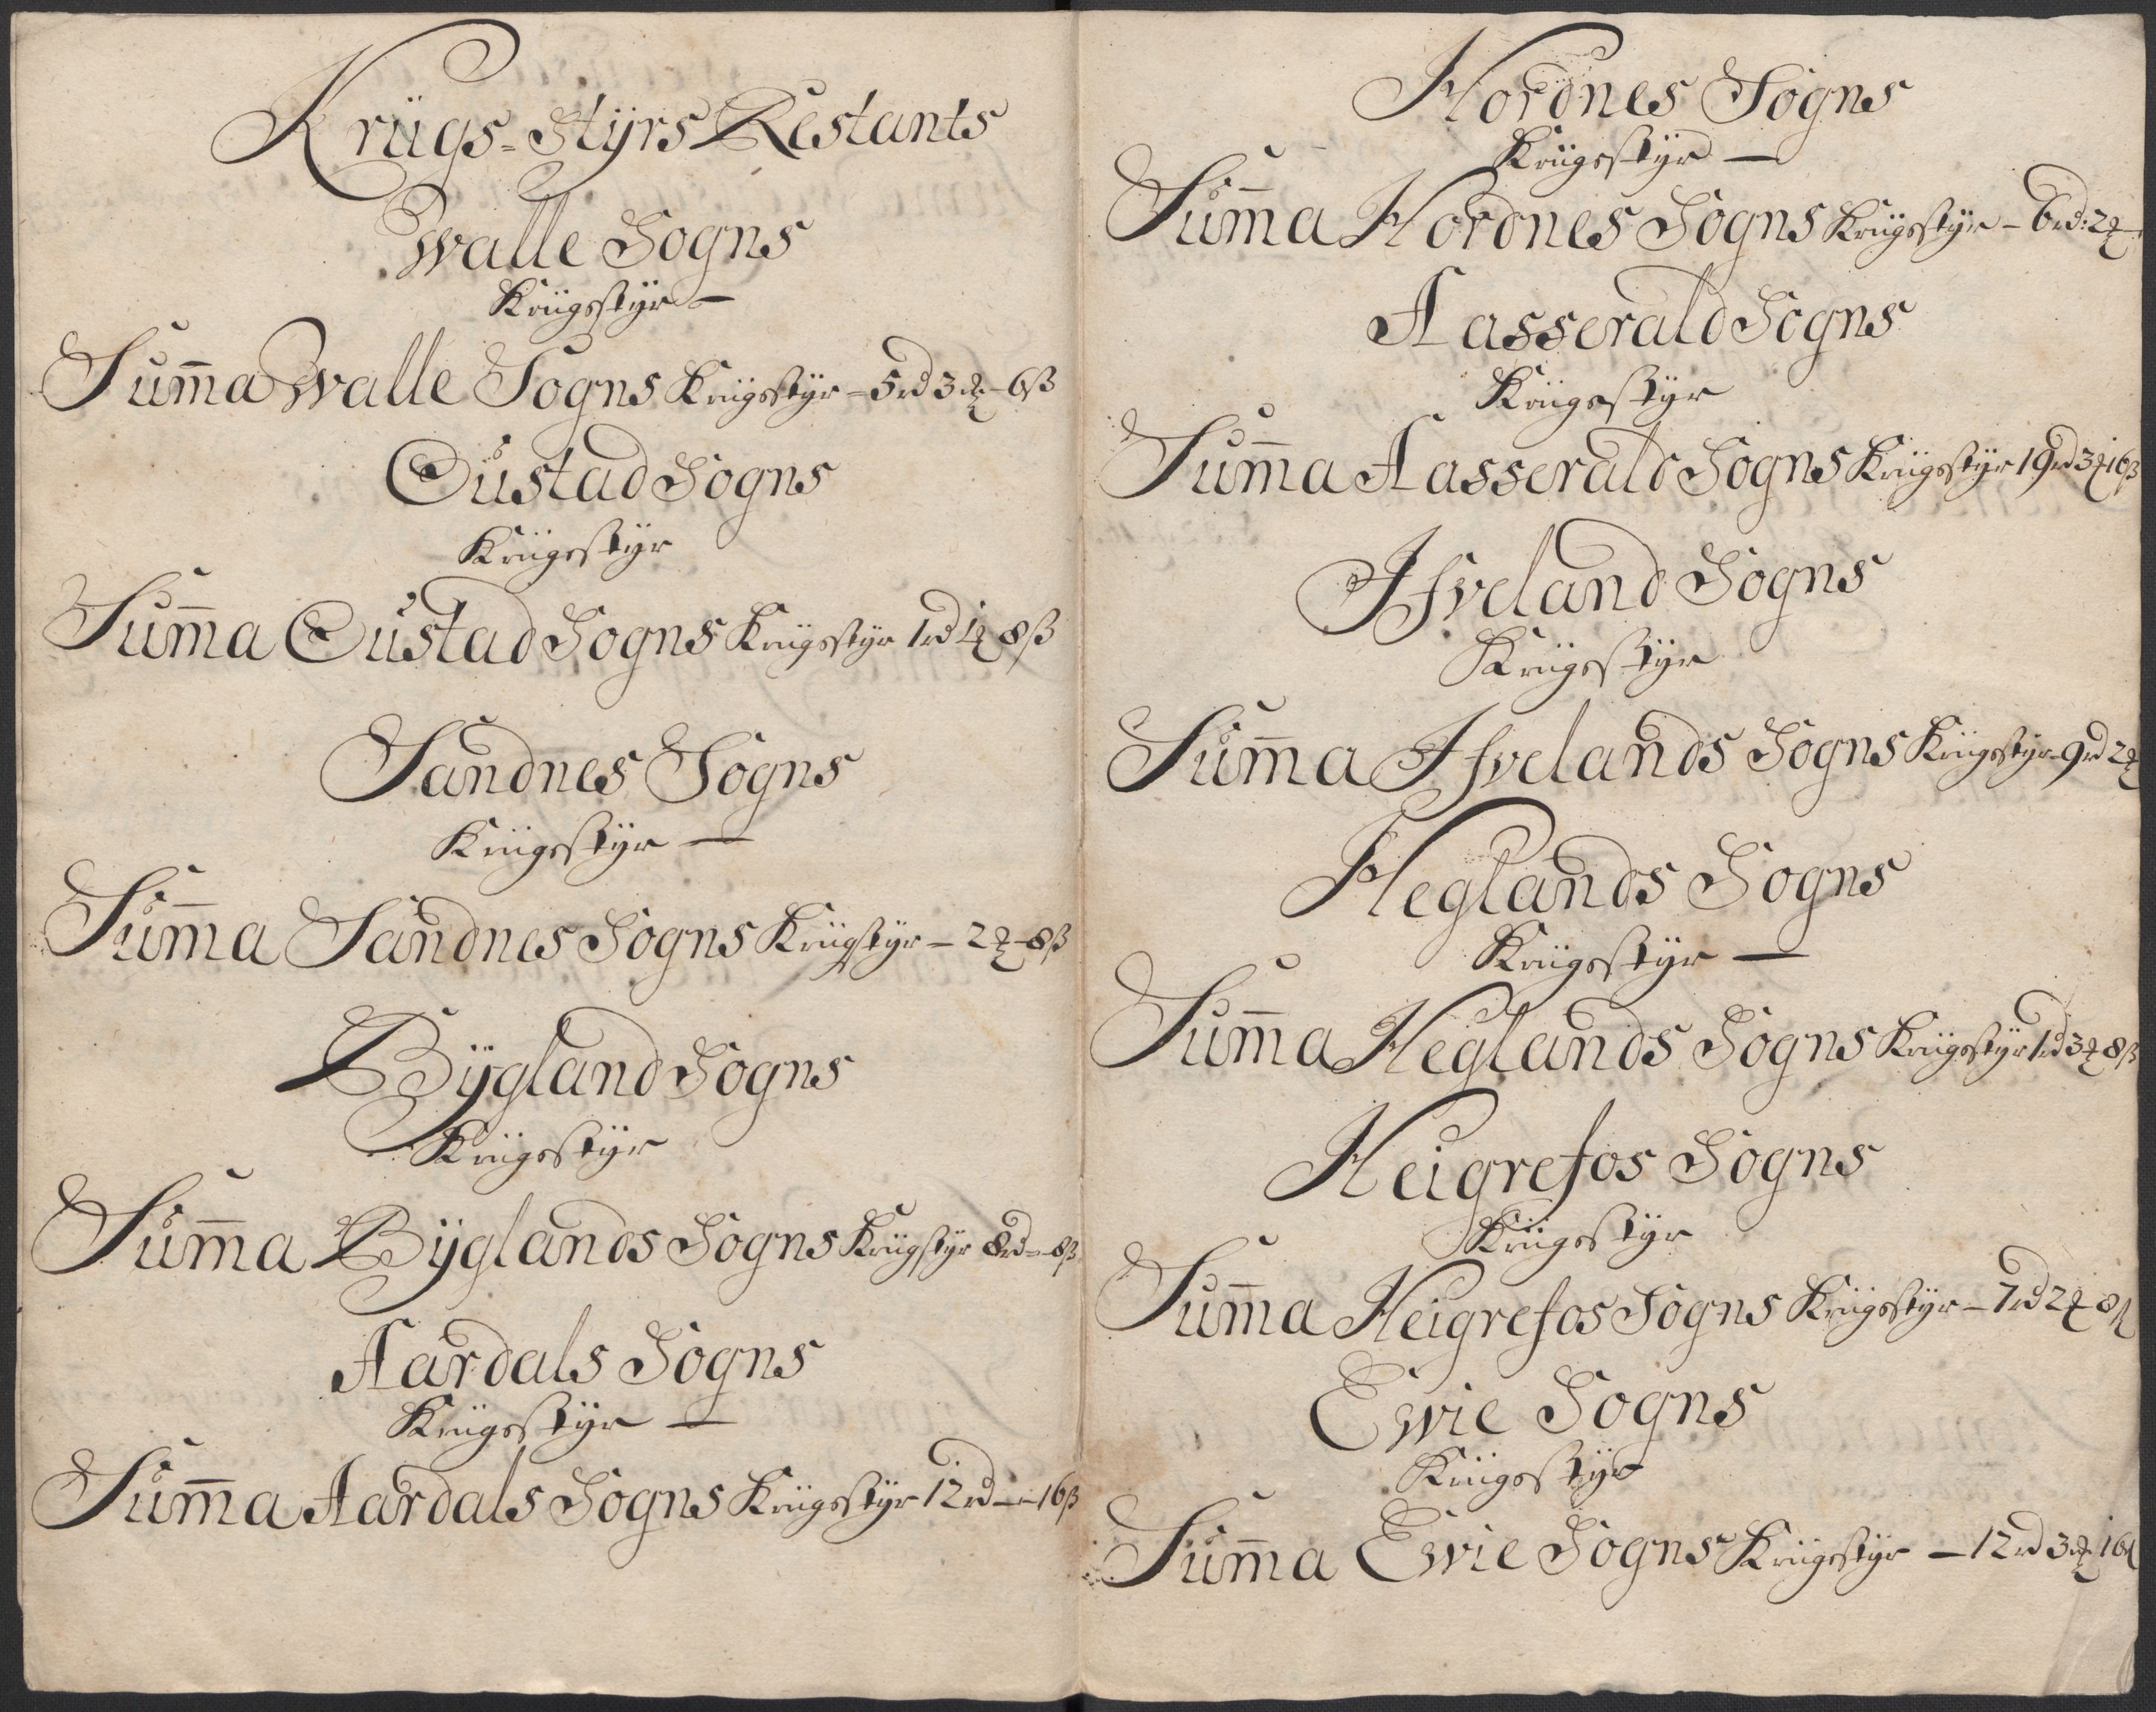 Krügs-Stÿrs Restants
Walle Sogns
Krügsstÿr —
Sum̄a Walle Sogns Krügsstÿr – 5rd 3 ort – 6ß
Oustad Sogns
Krügsstÿr
Sum̄a Oustad Sogns Krügsstÿr 1rd 1 ort 8ß
Sandnes Sogns
Krügsstÿr —
Sum̄a Sandnes Sogns Krügstÿr – 2 ort – 8ß
Bÿgland Sogns
Krügsstÿr
Sum̄a Bÿglands Sogns Krügstÿr 8rd – 8ß
Aardals Sogns
Krügsstÿr —
Sum̄a Aardals Sogns Krügsstÿr 12rd — 16ß
Hordnes Sogns
Krügsstÿr —
Sum̄a Hordnes Sogns Krügsstÿr – 6rd: 2 ort
Aasserald Sogns
Krügsstÿr
Sum̄a Aasserald Sogns Krügsstÿr 19rd 3 ort 16ß
Ifveland Sogns
Krügsstÿr
Sum̄a Ifvelands Sogns Krügsstÿr – 9rd 2 ort
Heglands Sogns
Krügsstÿr —
Sum̄a Heglands Sogns Krügsstÿr 1rd 3 ort 8ß
Heigrefos Sogns
Krügsstÿr
Sum̄a Heigrefos Sogns Krügsstÿr – 7rd 2 ort 8ß
Ewie Sogns
Krügsstÿr
Sum̄a Ewie Sogns Krügsstÿr — 12rd 3 ort 16ß